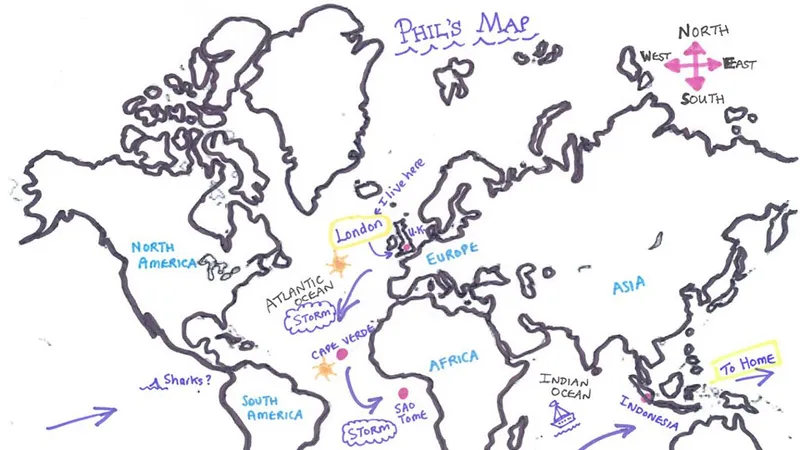 PHIL'S MAP
NORTH
WEST
EAST
SOUTH
I live here
London
U.K
NORTH
AMERICA
EUROPE
ASIA
ATLANTIC
OCEAN
STORM
CAPE VERDE
AFRICA
TO HOME
Sharks?
SOUTH
AMERICA
SAO
TOME
STORM
INDIAN
OCEAN
INDONESIA